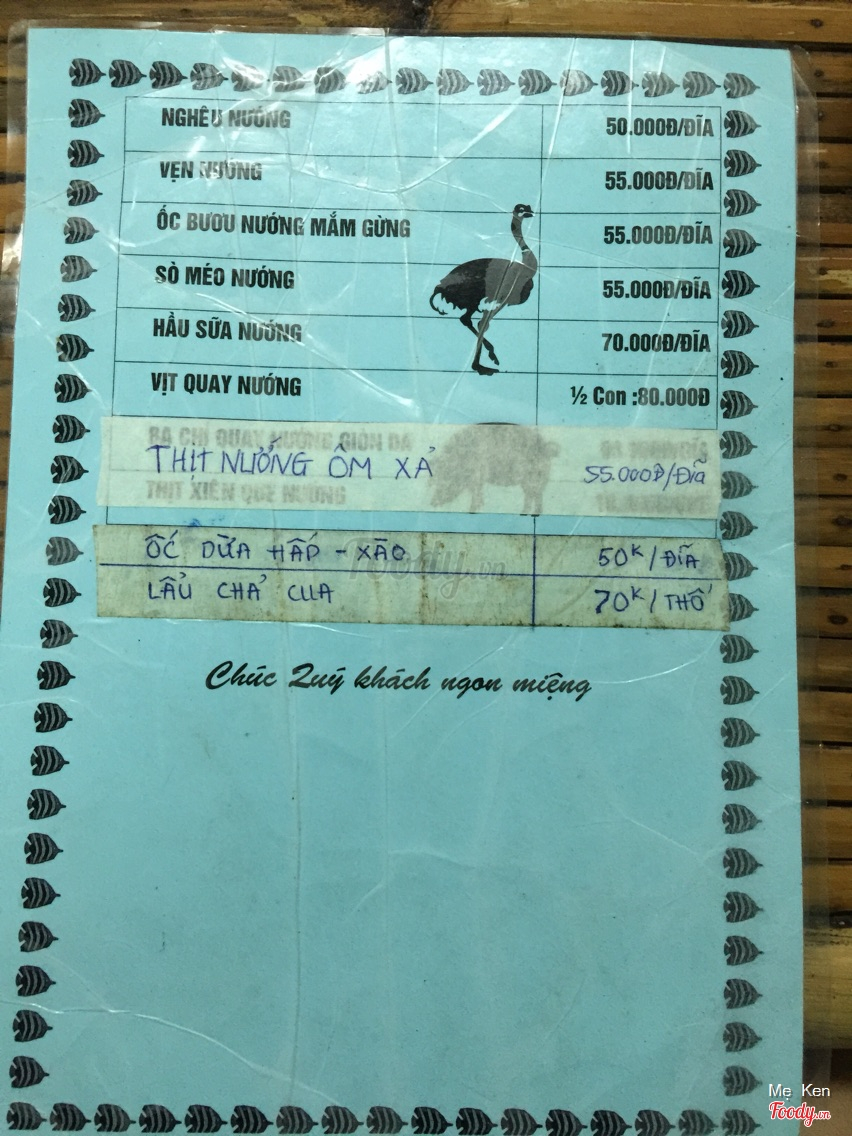 NGHÊU NƯỚNG 50.000Đ/ĐĨA
VẸN NƯỚNG 55.000Đ/ĐĨA
ỐC BƯƠU NƯỚNG MẮM GỪNG 55.000Đ/ĐĨA
SÒ MÉO NƯỚNG 55.000Đ/ĐĨA
HẦU SỮA NƯỚNG 70.000Đ/ĐĨA
VỊT QUAY NƯỚNG ½ Con :80.000Đ
BA CHỈ QUAY NƯỚNG GIÒN DA
THỊT NƯỚNG ÔM XẢ 55.000Đ/Đĩa
THỊT XIÊN QUE NƯỚNG
ỐC DỪA HẤP - XÀO 50K/ĐĨA
LẨU CHẢ CUA 70K/THỐ
Foody.vn
Chúc Quý khách ngon miệng
Mẹ Ken
Foody.vn